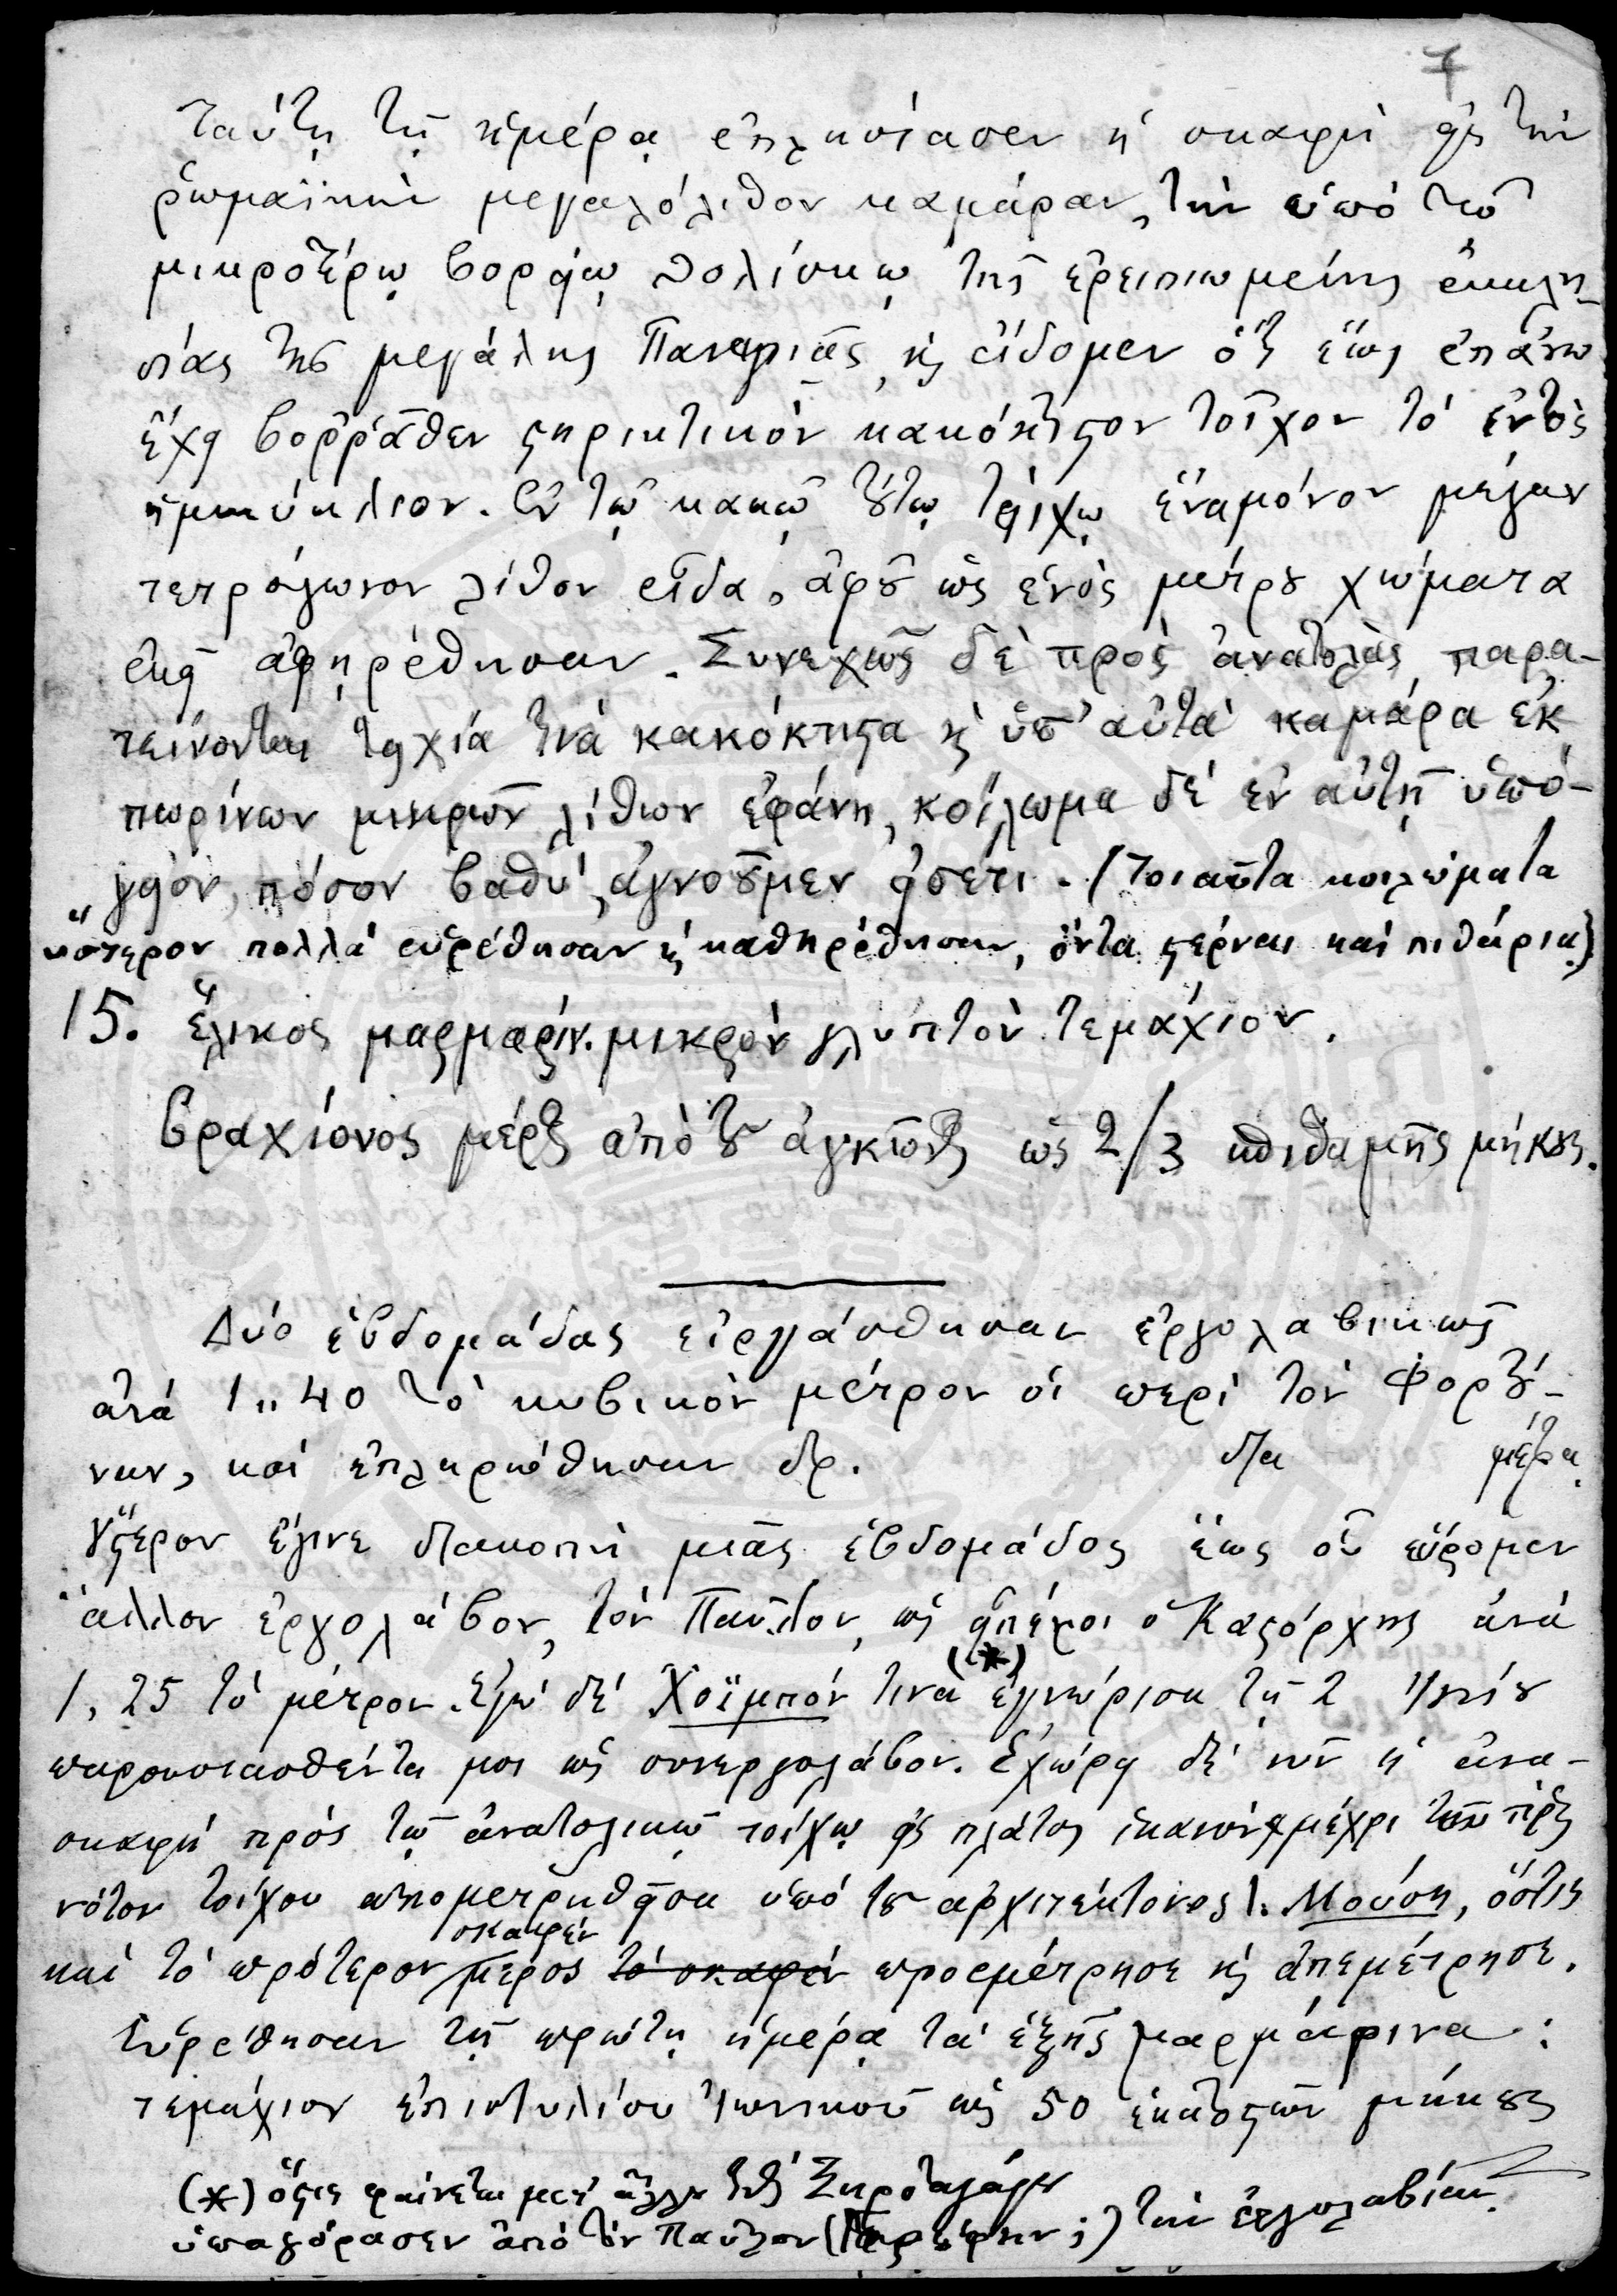 7
Ταύτῃ τῇ ἡμέρᾳ ἐπλησίασεν ἡ σκαφὴ εἰς τὴν
ῥωμαϊκὴν μεγαλόλιθον καμάραν, τὴν ὑπὸ τῷ
μικροτέρῳ βορείῳ θολίσκῳ τῆς ἐρειπιωμένης ἐκκλη-
σίας τῆς μεγάλης Παναγιᾶς, κ̀ εἴδομεν ὅτι ἕως ἐπάνω
ἔχει βορρᾶθεν στηρικτικὸν κακόκτιστον τοῖχον τὸ ἐντὸς
ἡμικύκλιον. Ἐν τῷ κακῷ τούτῳ τοίχῳ ἕνα μόνον μέγαν
τετράγωνον λίθον εἶδα, ἀφοῦ ὡς ἑνὸς μέτρου χώματα
ἐκεῖ ἀφῃρέθησαν. Συνεχῶς δὲ πρὸς ἀνατολὰς παρα-
τείνονται τειχία τινὰ κακόκτιστα κ̀ ὑπ' αὐτὰ καμάρα ἐκ
πωρίνων μικρῶν λίθων ἐφάνη, κοίλωμα δὲ ἐν αὐτῇ ὑπό-
γειον, πόσον βαθύ, ἀγνοοῦμεν εἰσέτι. (Τοιαῦτα κοιλώματα
ὕστερον πολλὰ εὑρέθησαν κ̀ καθῃρέθησαν, ὄντα στέρναι καὶ πιθάρια.)
15. ἕλικος μαρμαρίν. μικρὸν γλυπτὸν τεμάχιον.
βραχίονος μέρος ἀπὸ τοῦ ἀγκῶνος ὡς 2/3 σπιθαμῆς μήκους.
Δύο ἑβδομάδας εἰργάσθησαν ἐργολαβικῶς
ἀνὰ 1,,40 τὸ κυβικὸν μέτρον οἱ περὶ τὸν Φορτού-
ναν, καὶ ἐπληρώθησαν δρ. διὰ μέτρα.
Ὕστερον ἔγινε διακοπὴ μιᾶς ἑβδομάδος ἕως οὗ εὕρομεν
ἄλλον ἐργολάβον, τὸν Παῦλον, ὡς εἶπέ μοι ὁ Καστόρχης ἀνὰ
1,25 τὸ μέτρον. Ἐγὼ δὲ Χοϊμπόν τινα (*) ἐγνώρισα τῇ 2
παρουσιασθέντα μοι ὡς συνεργολάβον. Ἐχώρει δὲ νῦν ἡ ἀνα-
σκαφὴ πρὸς τῷ ἀνατολικῷ τοίχῳ εἰς πλάτος ἱκανὸν μέχρι τοῦ πρὸς
νότον τοίχου ἀπομετρηθεῖσα ὑπὸ τοῦ ἀρχιτέκτονος Ι. Μούση, ὅστις
καὶ τὸ πρότερον σκαφὲν μέρος τὸ σκαφὲν προεμέτρησε κ̀ ἀπεμέτρησε.
Εὑρέθησαν τῇ πρώτῃ ἡμέρᾳ τὰ ἑξῆς μαρμάρινα:
τεμάχιον ἐπιστυλίου Ἰωνικοῦ ὡς 50 ἑκατοστῶν μήκους
(*) ὅστις φαίνεται μετ' ἄλλου τινὸς
ὑπαγόρασεν ἀπὸ τὸν Παῦλον τὴν ἐργολαβίαν.